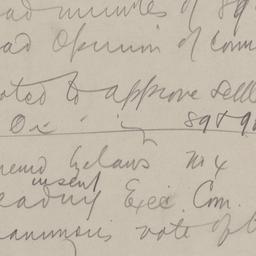 ad minutes of 89
ad Opinion of Coun
oted to approve settl
89 & 90
mend By Laws No 4
insert
eading Exec. Com.
animous vote of